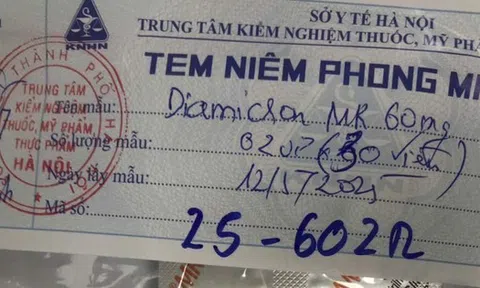 KNHN
SỞ Y TẾ HÀ NỘI
TRUNG TÂM KIỂM NGHIỆM THUỐC, MỸ PHẨ
TEM NIÊM PHONG M
THÀNH PHỐ HÀ NỘI
TRUNG TÂM
KIỂM NGHIỆM
THUỐC, MỸ PHẨM
THỰC PHẨM
HÀ NỘI
Tên mẫu: Diamicron MR 60mg
Số lượng mẫu: (30 viên)
Ngày lấy mẫu:
Mã số: 25-602